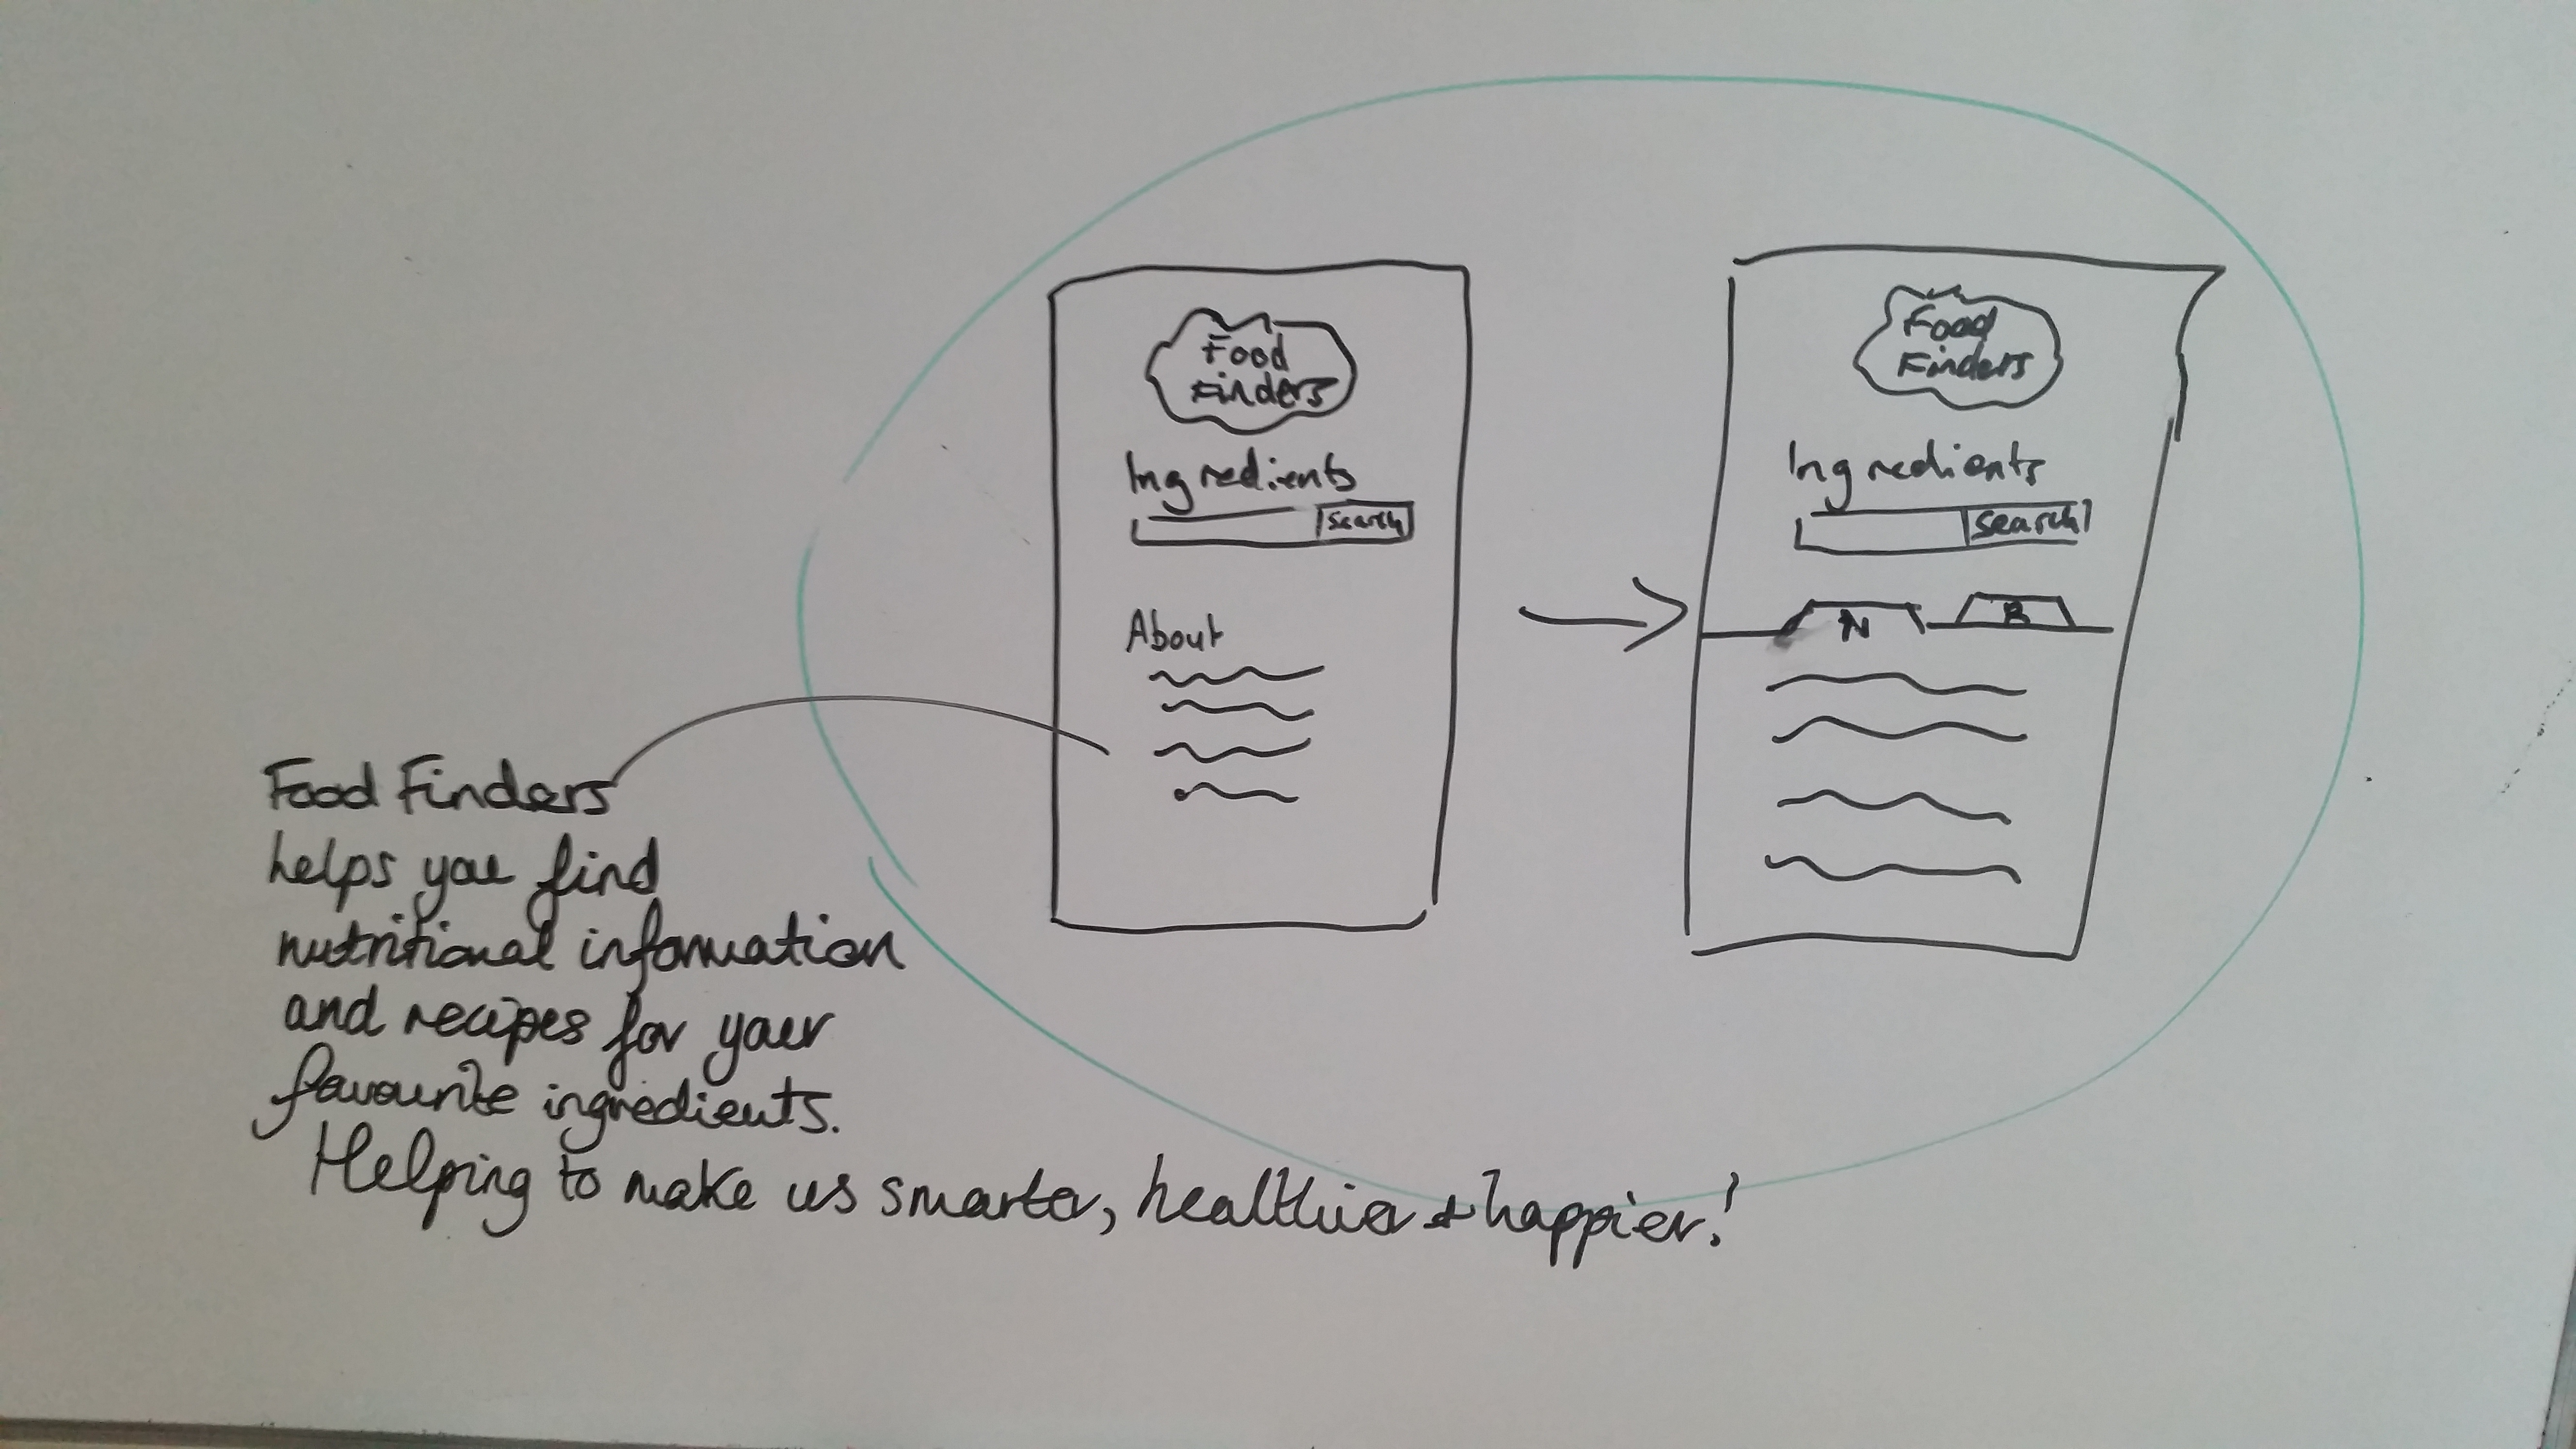 Food
Finders
Ingredients
Search
About
Food
Finders
Ingredients
Search
N
R
Food Finders
helps you find
nutritional information
and recipes for your
favourite ingredients.
Helping to make us smarter, healthier + happier!